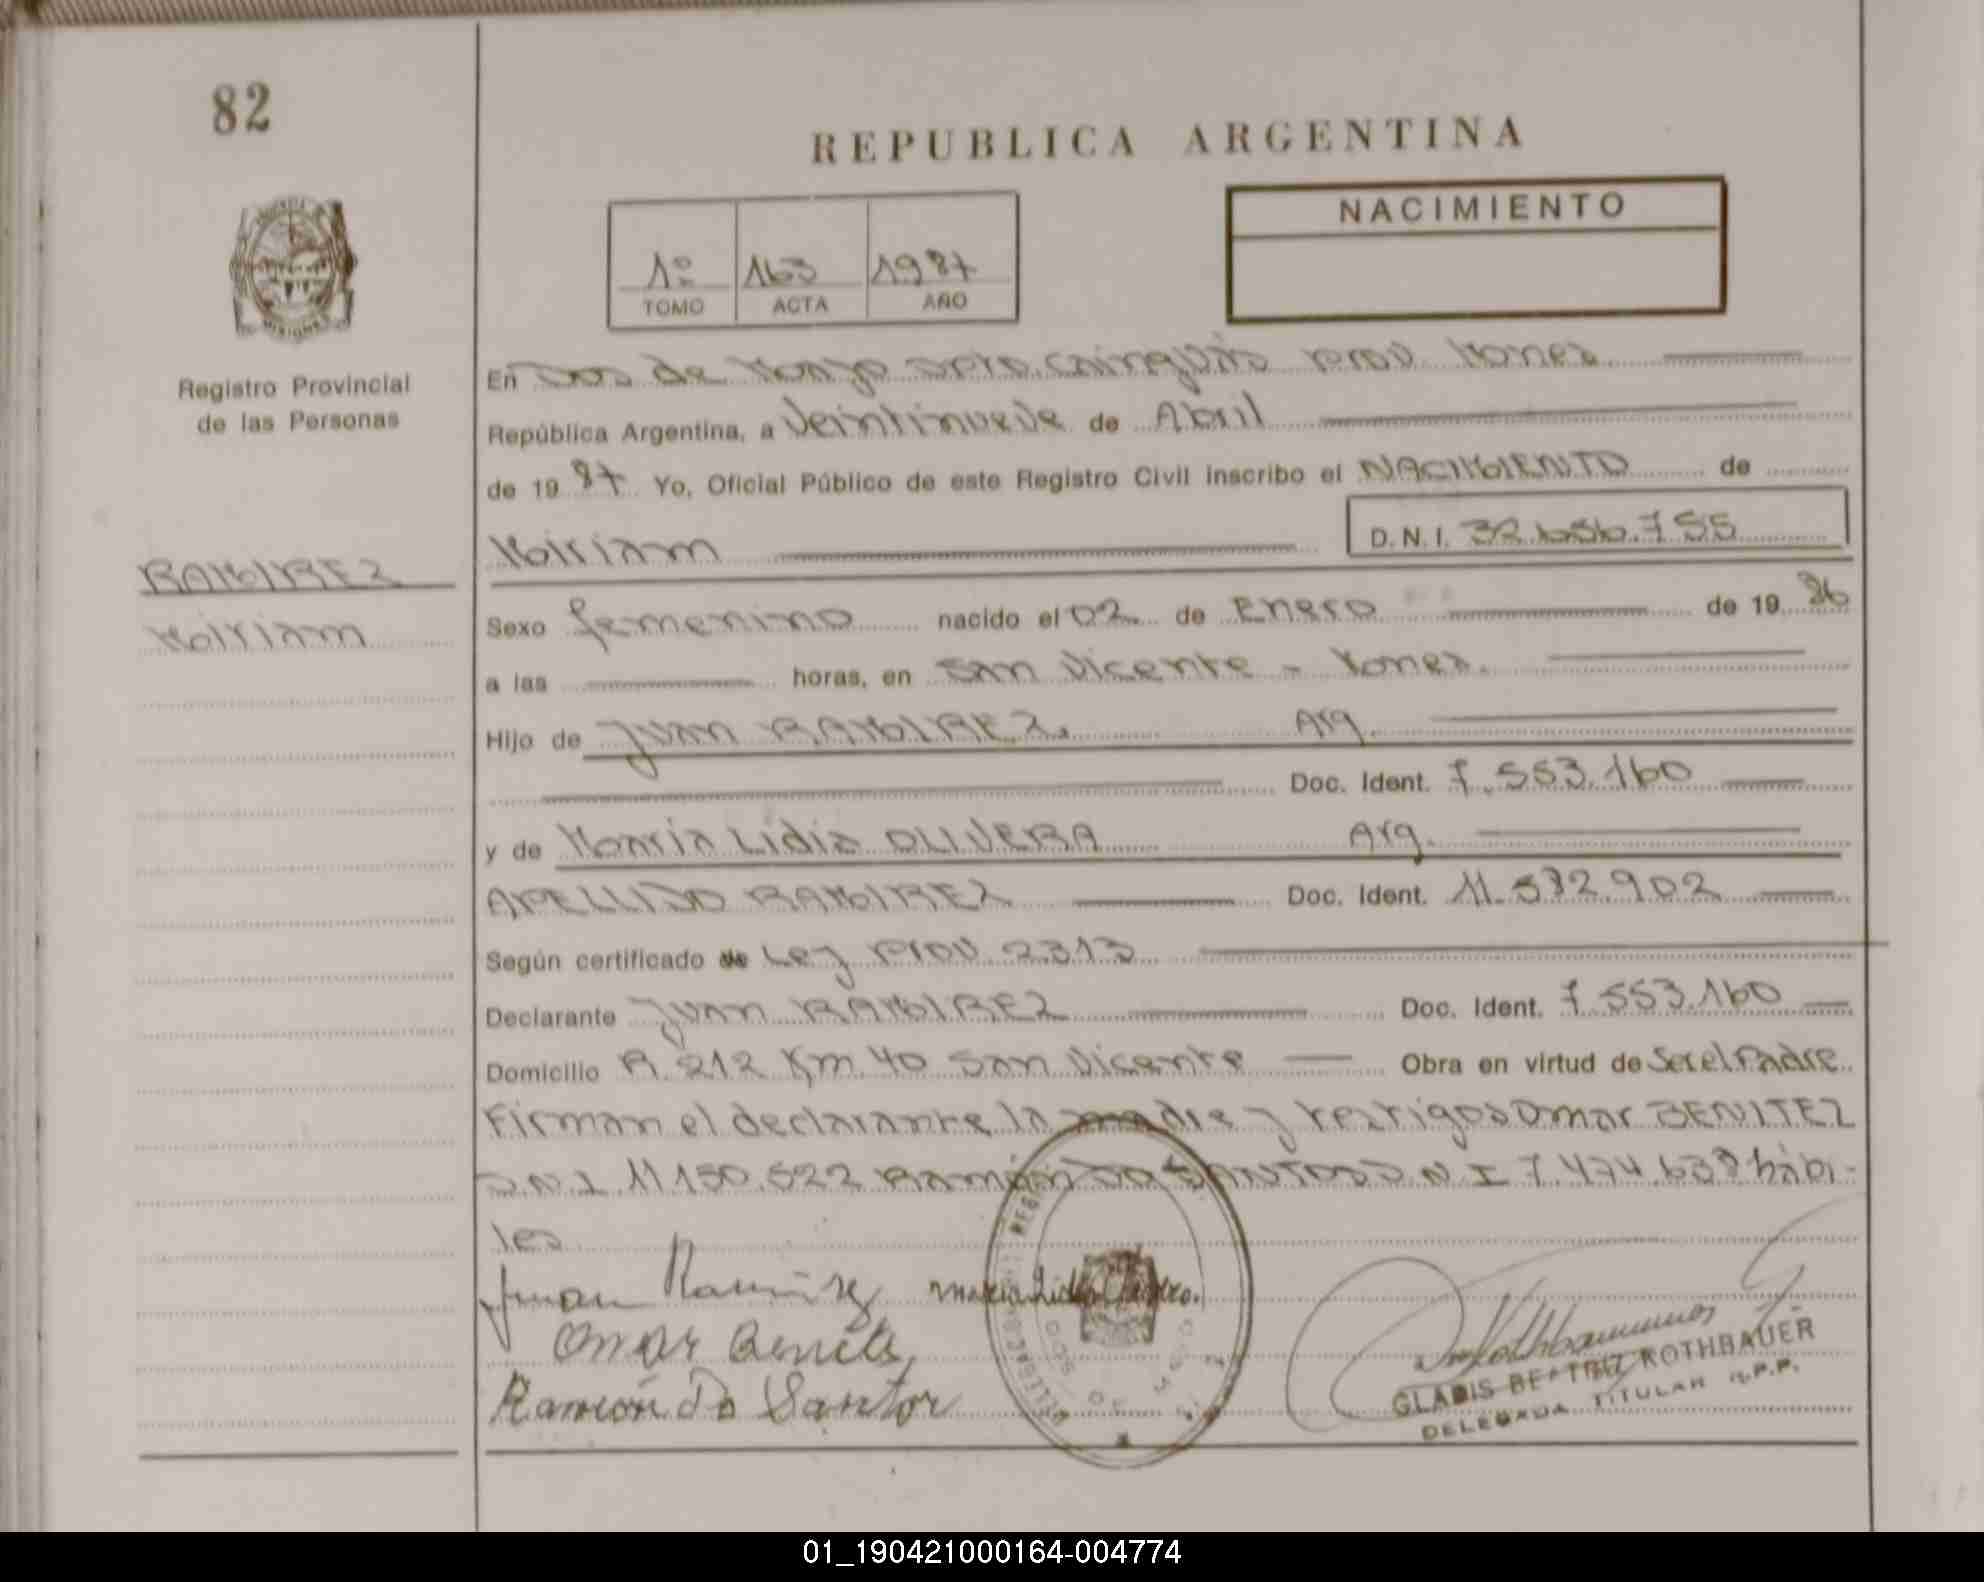 82
REPUBLICA ARGENTINA
MISIONES
Registro Provincial
de las Personas
1º 163 1987
TOMO ACTA AÑO
NACIMIENTO
En Dos de Mayo Dpto. Cainguás Prov. Mones
República Argentina, a Veintinueve de Abril
de 19 87 Yo, Oficial Público de este Registro Civil inscribo el NACIMIENTO de
RAMIREZ
Miriam
Miriam D.N.I. 32.656.755
Sexo femenino nacido el 02 de Enero de 19 86
a las horas, en San Vicente - Mones.
Hijo de Juan RAMIREZ. Arg.
Doc. Ident. 7.553.160
y de Maria Lidia OLIVERA Arg.
APELLIDO RAMIREZ Doc. Ident. 11.592.902
Según certificado de Ley Prov 2313
Declarante Juan RAMIREZ Doc. Ident. 7.553.160
Domicilio R. 212 Km 40 San Vicente Obra en virtud de Ser el Padre
Firman el declarante la madre y testigos Omar BENITEZ
D.N.I 11 150.522 Ramón DO SANTOS D.N.I 7.474.638 hábi-
les
Juan Ramirez Maria Lidia
Omar Benitez
Ramón Do Santor
GLADIS BEATRIZ ROTHBAUER
DELEGADA TITULAR R.P.P.
01_190421000164-004774